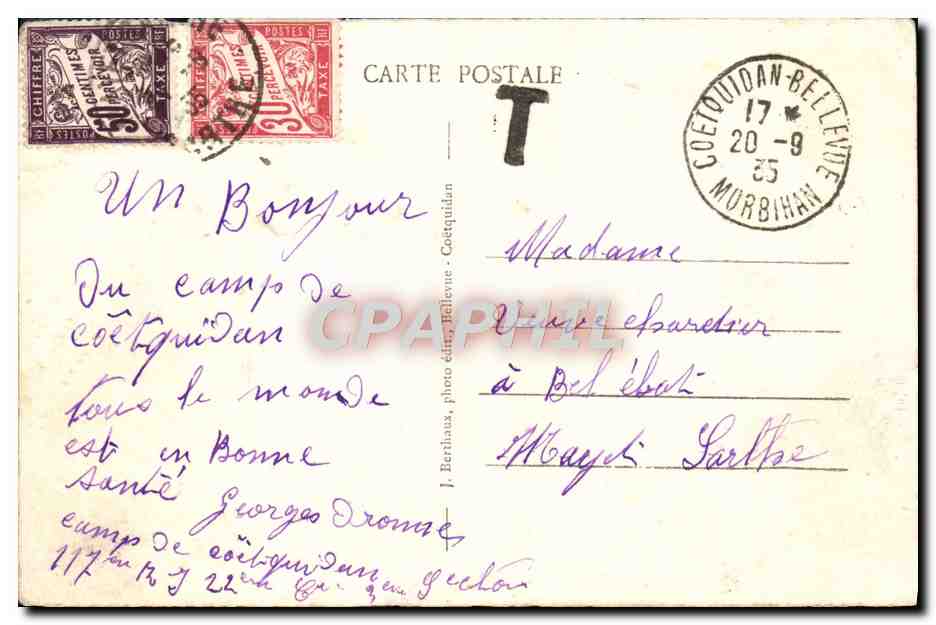 POSTES RF
CHIFFRE TAXE
50 CENTIMES A PERCEVOIR
POSTES RF
CHIFFRE TAXE
30 CENTIMES A PERCEVOIR
CARTE POSTALE
T
COETQUIDAN-BELLEVUE
17 *
20 -9
35
MORBIHAN
Un Bonjour
Du camp de
cöetquidan
tous le monde
est en Bonne
santé Georges Dronne
camp de cöetquidan
117 em R I 22 em Cie Section
J. Berthaux, photo édit., Bellevue - Coëtquidan
Madame
Veuve chardier
à Bel ébat
Mayet Sarthe
CPAPHIL